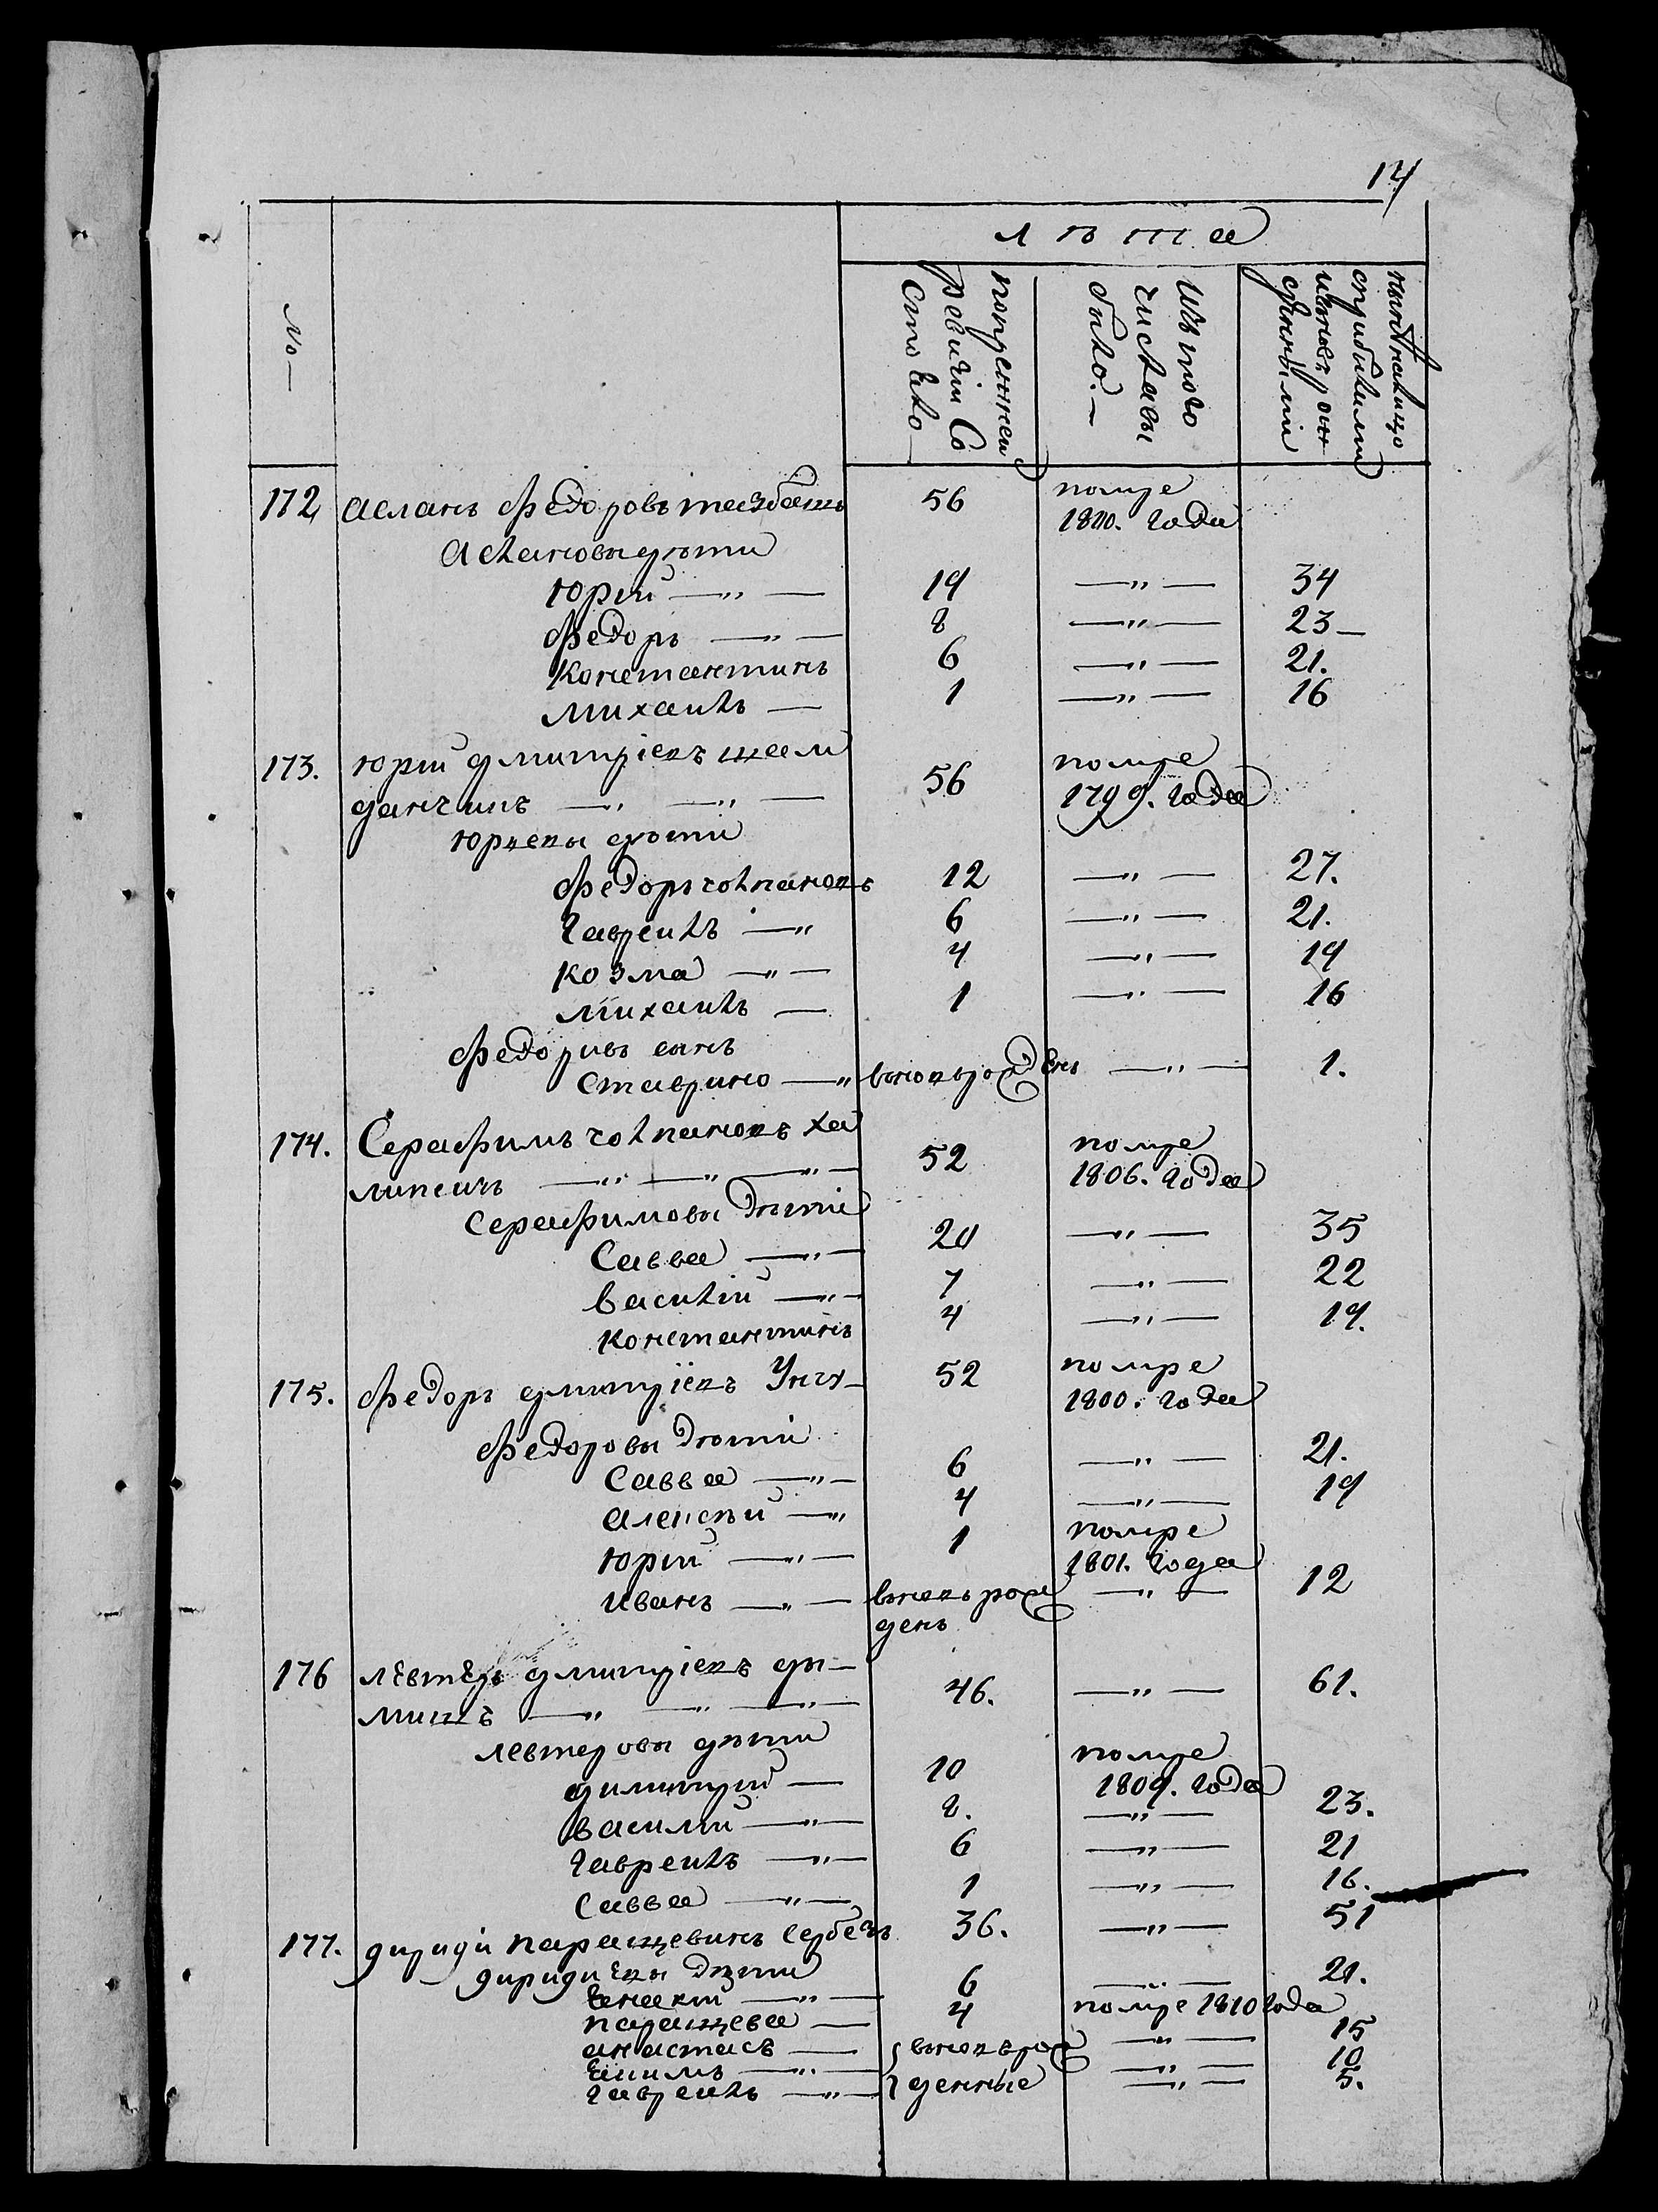 14
лѣта
№
попрежней ревизіи Состояло
Изъ того числа выбыло
172 Асланъ Федоровъ тазбашъ 56 помре 1800. года
Аслановы дѣти
Юрій 19 34
Федоръ 8 23
Константинъ 6 21.
Михаилъ 1 16
173. Юрій Дмитріевъ шам 56 помре
данчинъ 1799. года
Юрьевы дѣти
Федоръ чолпановъ 12 27.
Гавреилъ 6 21.
Козма 4 19
Михаилъ 1 16
Федоровъ сынъ
Ставрино вновь рожденъ 1.
174. Серафимъ чолпановъ ха 52 помре
липеичъ 1806. года
Серафимовы дѣти
Савва 20 35
Василій 7 22
Константинъ 4 19.
175. Федоръ Дмитріевъ 52 помре 1800. года
Федоровы дѣти
Савва 6 21.
Алексѣй 4 19
Юрій 1 помре 1801. года
Иванъ вновь рожденъ 12
176 Левтеръ Дмитріевъ ды 46. 61.
мишъ
Левтеровы дѣти
Димитрій 10 помре 1809. года
Василий 8. 23.
Гавреилъ 6 21
Савва 1 16.
177. Дириди Паращевинъ Сербезъ 36. 51
Диридиевы дѣти
Енаекій 6 21.
Паращева 4 помре 1810 года
Анастасъ вновь рож 15
Екимъ 10
Гавреилъ денные 5.